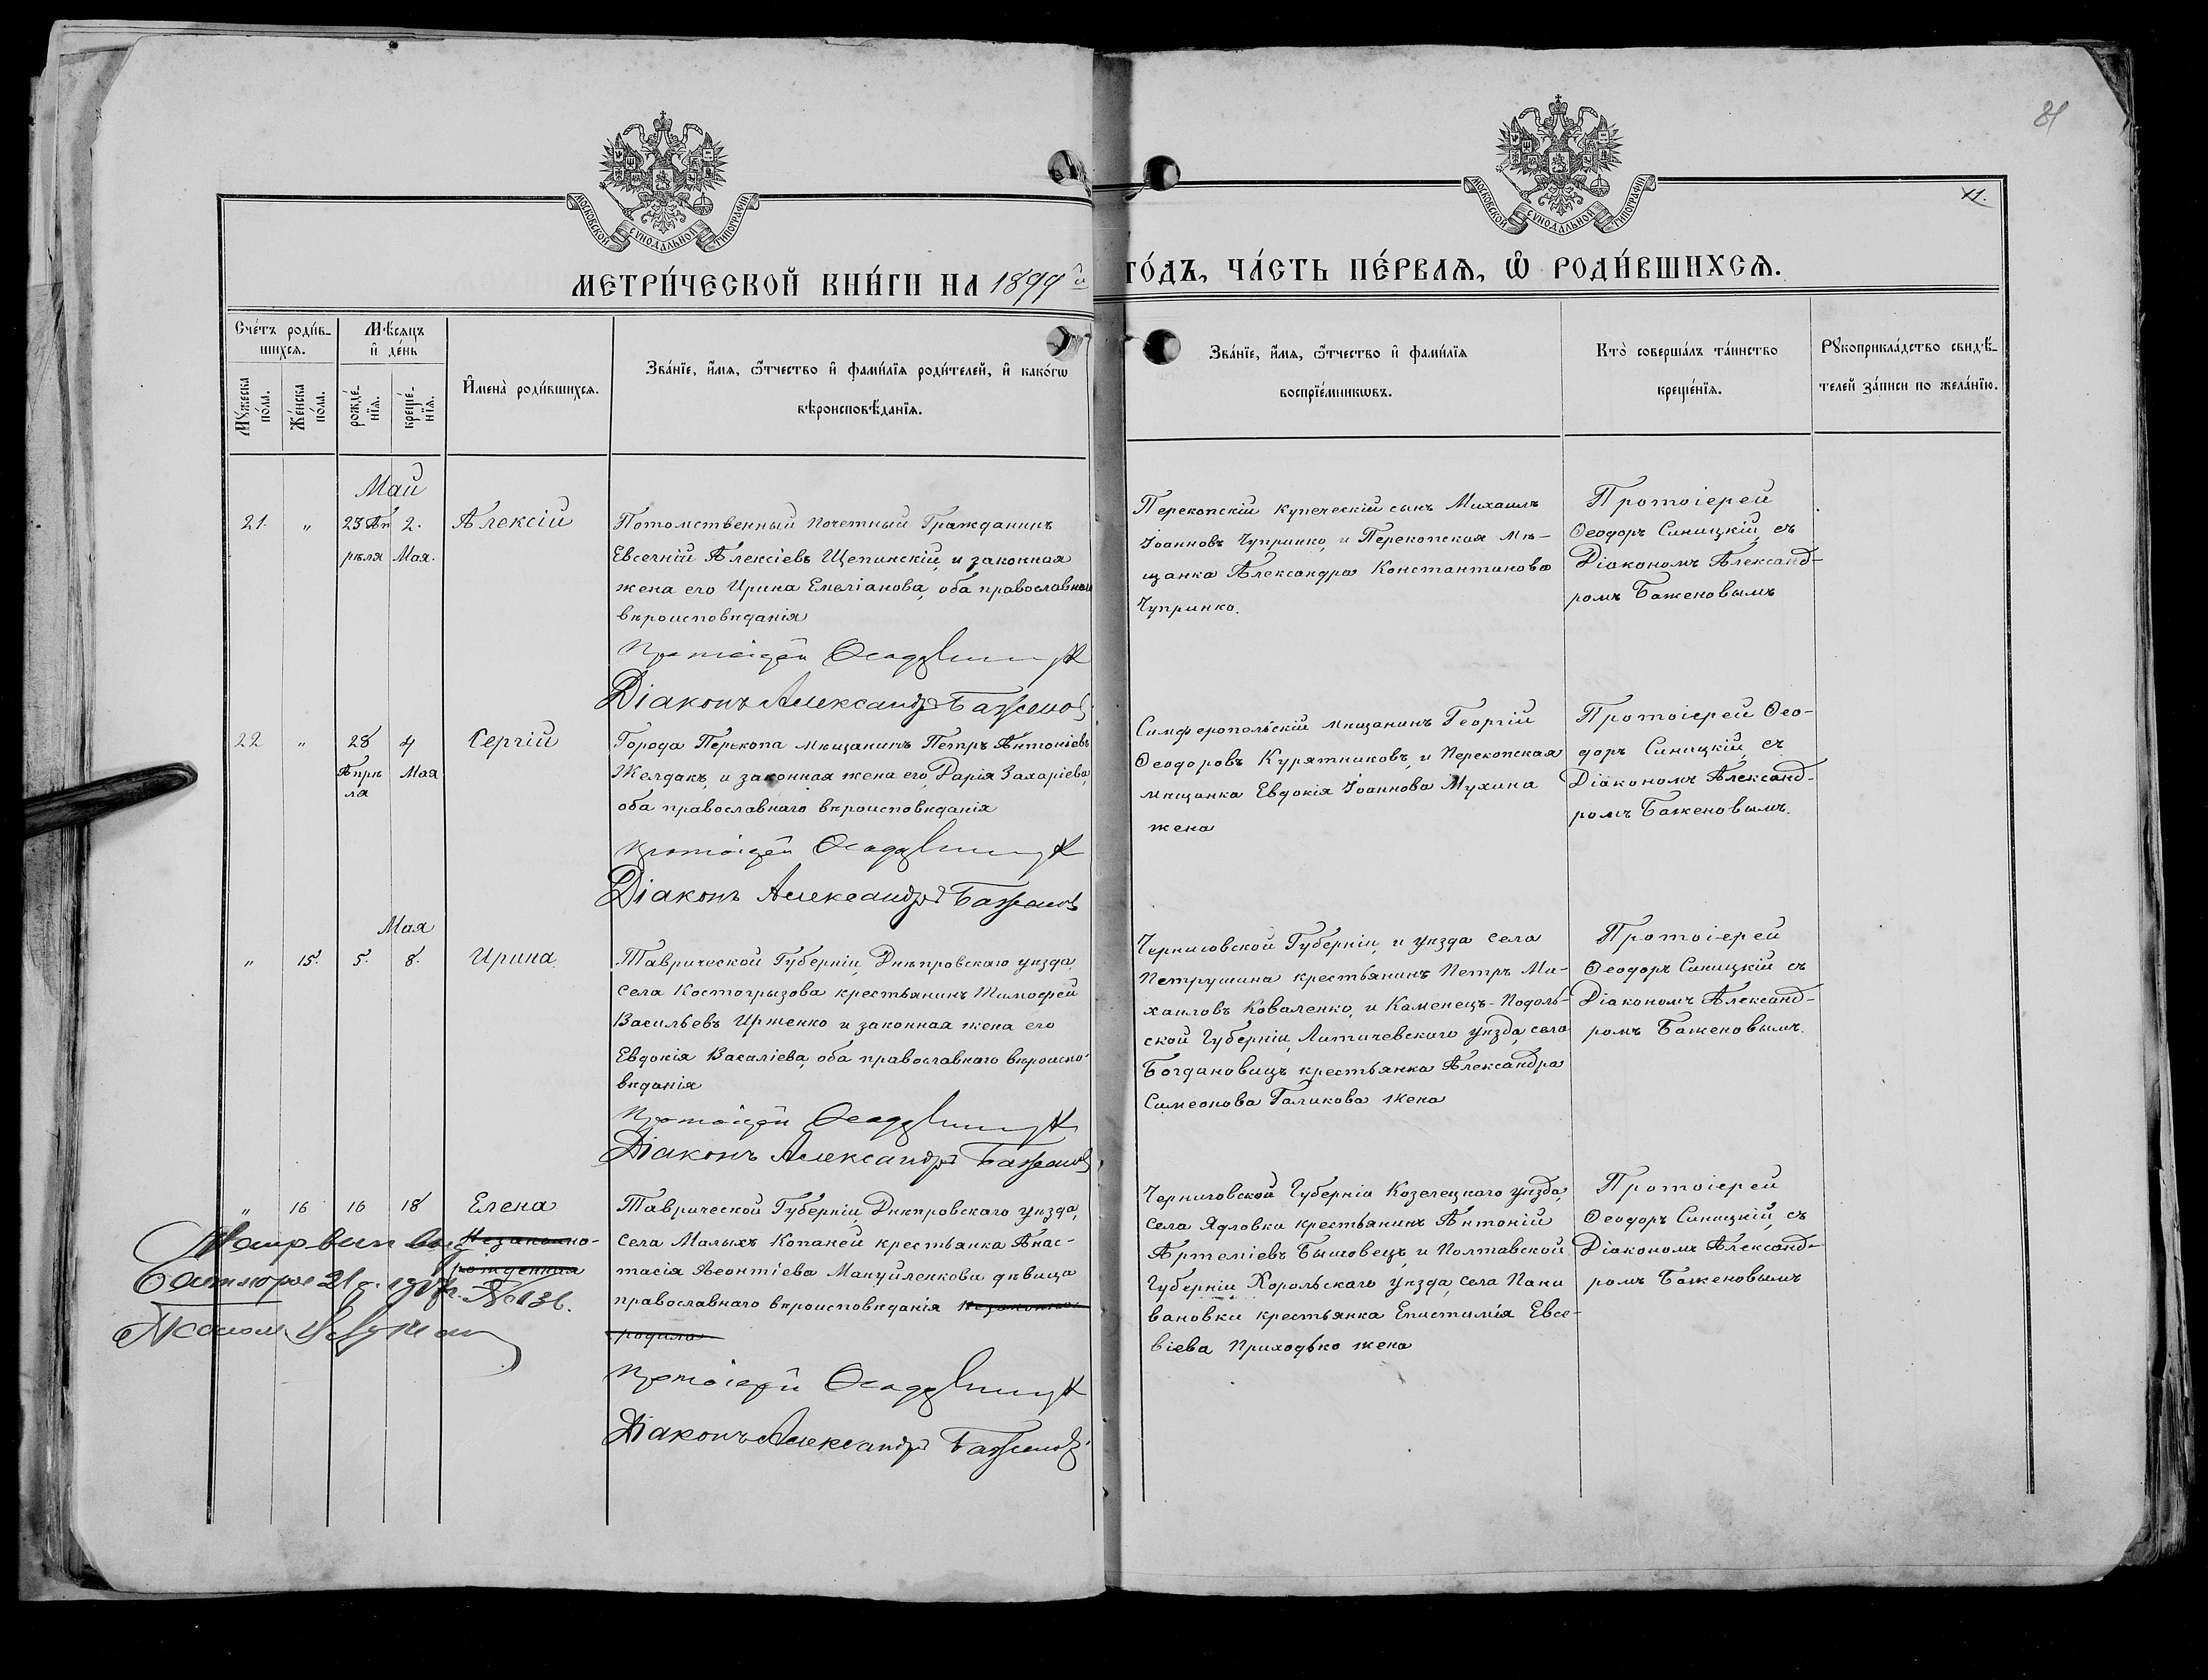 81
11.
МОСКОВСКОЙ СУНОДАЛЬНОЙ ТИПОГРАФІИ
МОСКОВСКОЙ СУНОДАЛЬНОЙ ТИПОГРАФІИ
МЕТРИ́ЧЕСКОЙ КНИ́ГИ НА 1899й ГО́ДЪ, ЧА́СТЬ ПЕ́РВАѦ, Ѡ РОДИ́ВШИХСѦ.
Сче́тъ роди́в-
шихсѧ.
Мꙋжеска по́ла.
Же́нска по́ла.
Мѣ́сѧцъ
и҆ де́нь
рожде́-
нїѧ.
креще́-
нїѧ.
И҆мена̀ роди́вшихсѧ.
Зва́нїе, и҆́мѧ, ѻ҆́тчество и҆ фамилїѧ роди́телей, и҆ како́гѡ
вѣроисповѣ́данїѧ.
Зва́нїе, и҆́мѧ, ѻ҆́тчество и҆ фами́лїѧ
воспрїе́мникѡвъ.
Кто̀ соверша́лъ та́инство
креще́нїѧ.
Рꙋкоприкла́дство свидѣ́-
телей за́писи по жела́нїю.
Май
21. " 23 Ап 2. Алексій
рѣля Мая.
Потомственный Почетный Гражданинъ
Евсечній Алексіевъ Щепинскій, и законная
жена его Ирина Емеліанова, оба православнаго
вѣроисповѣданія
Протоіерей Ѳеодоръ Синицкій
Діаконъ Александръ Баженовъ
Перекопскій купеческій сынъ Михаилъ
Іоанновъ Чупринко, и Перекопская мѣ-
щанка Александра Константинова
Чупринко.
Протоіерей
Ѳеодоръ Синицкій, съ
Діакономъ Александ-
ромъ Баженовымъ
22 " 28 4 Сергій
Апрѣ Мая
ля
Города Перекопа мѣщанинъ Петръ Антоніевъ
Желдакъ, и законная жена его, Дарія Захаріева,
оба православнаго вѣроисповѣданія
Протоіерей Ѳеодоръ Синицкій
Діаконъ Александръ Баженовъ
Симферопольскій мѣщанинъ Георгій
Ѳеодоровъ Курятниковъ, и Перекопская
мѣщанка Евдокія Іоаннова Мухина
жена
Протоіерей Ѳео-
доръ Синицкій, съ
Діакономъ Александ-
ромъ Баженовымъ.
Мая
" 15. 5. 8. Ирина.
Таврической Губерніи, Днѣпровскаго уѣзда,
села Костогрызова крестьянинъ Тимофей
Васильевъ Ирженко и законная жена его
Евдокія Василіева, оба православнаго вѣроиспо-
вѣданія
Протоіерей Ѳеодоръ Синицкій
Діаконъ Александръ Баженовъ
Черниговской Губерніи, и уѣзда села
Петрушина крестьянинъ Петръ Ми-
хаиловъ Коваленко, и Каменецъ-Подоль-
ской Губерніи, Литичевскаго уѣзда, села
Богдановицъ крестьянка Александра
Симеонова Галикова жена
Протоіерей
Ѳеодоръ Синицкій съ
Діакономъ Александ-
ромъ Баженовымъ.
" 16 16 18 Елена
Незаконно-
рожденная
№ 136.
Таврической Губерніи, Днѣпровскаго уѣзда,
села Малыхъ Копаней крестьянка Анас-
тасія Леонтіева Мануйленкова дѣвица
православнаго вѣроисповѣданія незаконно
родила
Протоіерей Ѳеодоръ Синицкій
Діаконъ Александръ Баженовъ
Черниговской Губерніи Козелецкаго уѣзда,
села Ядловки крестьянинъ Антоній
Артеміевъ Бышовецъ, и Полтавской
Губерніи Хорольскаго уѣзда, села Пани
вановки крестьянка Епистимія Евсе-
віева Приходько жена
Протоіерей
Ѳеодоръ Синицкій, съ
Діакономъ Александ-
ромъ Баженовымъ